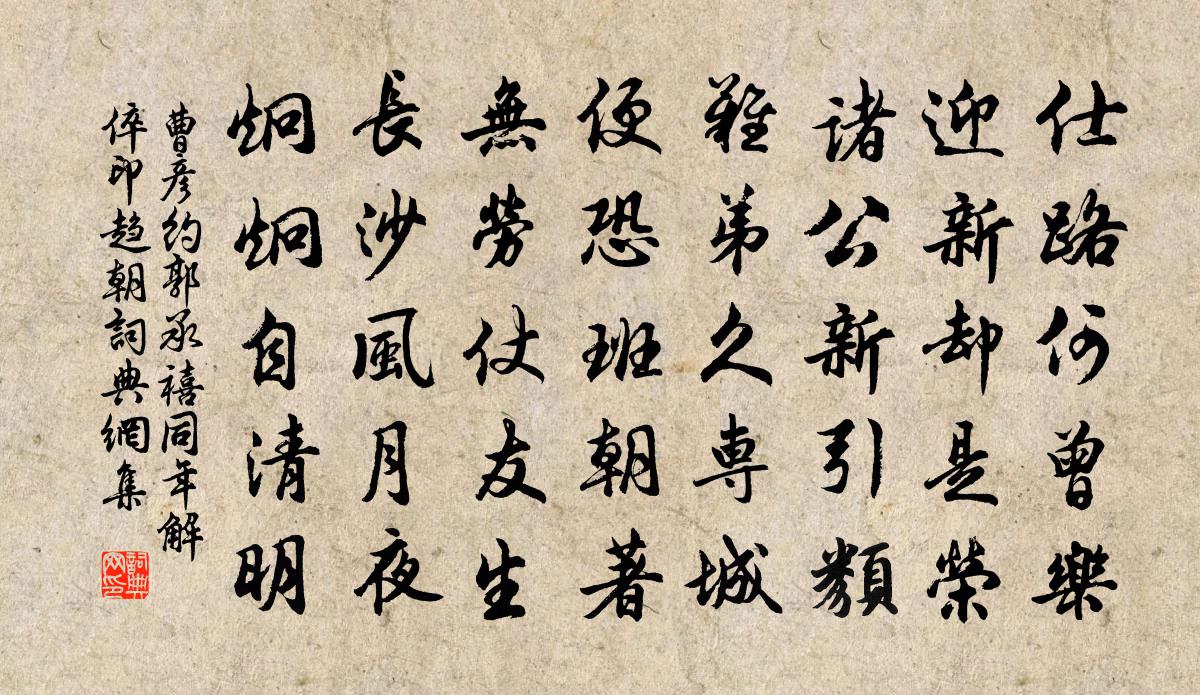 仕路何曾樂
迎新却是榮
諸公新引類
難弟久専城
便恐班朝著
無勞仗友生
長沙風月夜
炯炯自清明
曹彦約郭承禧同年解
倅印趨朝詞典網集
詞典网印